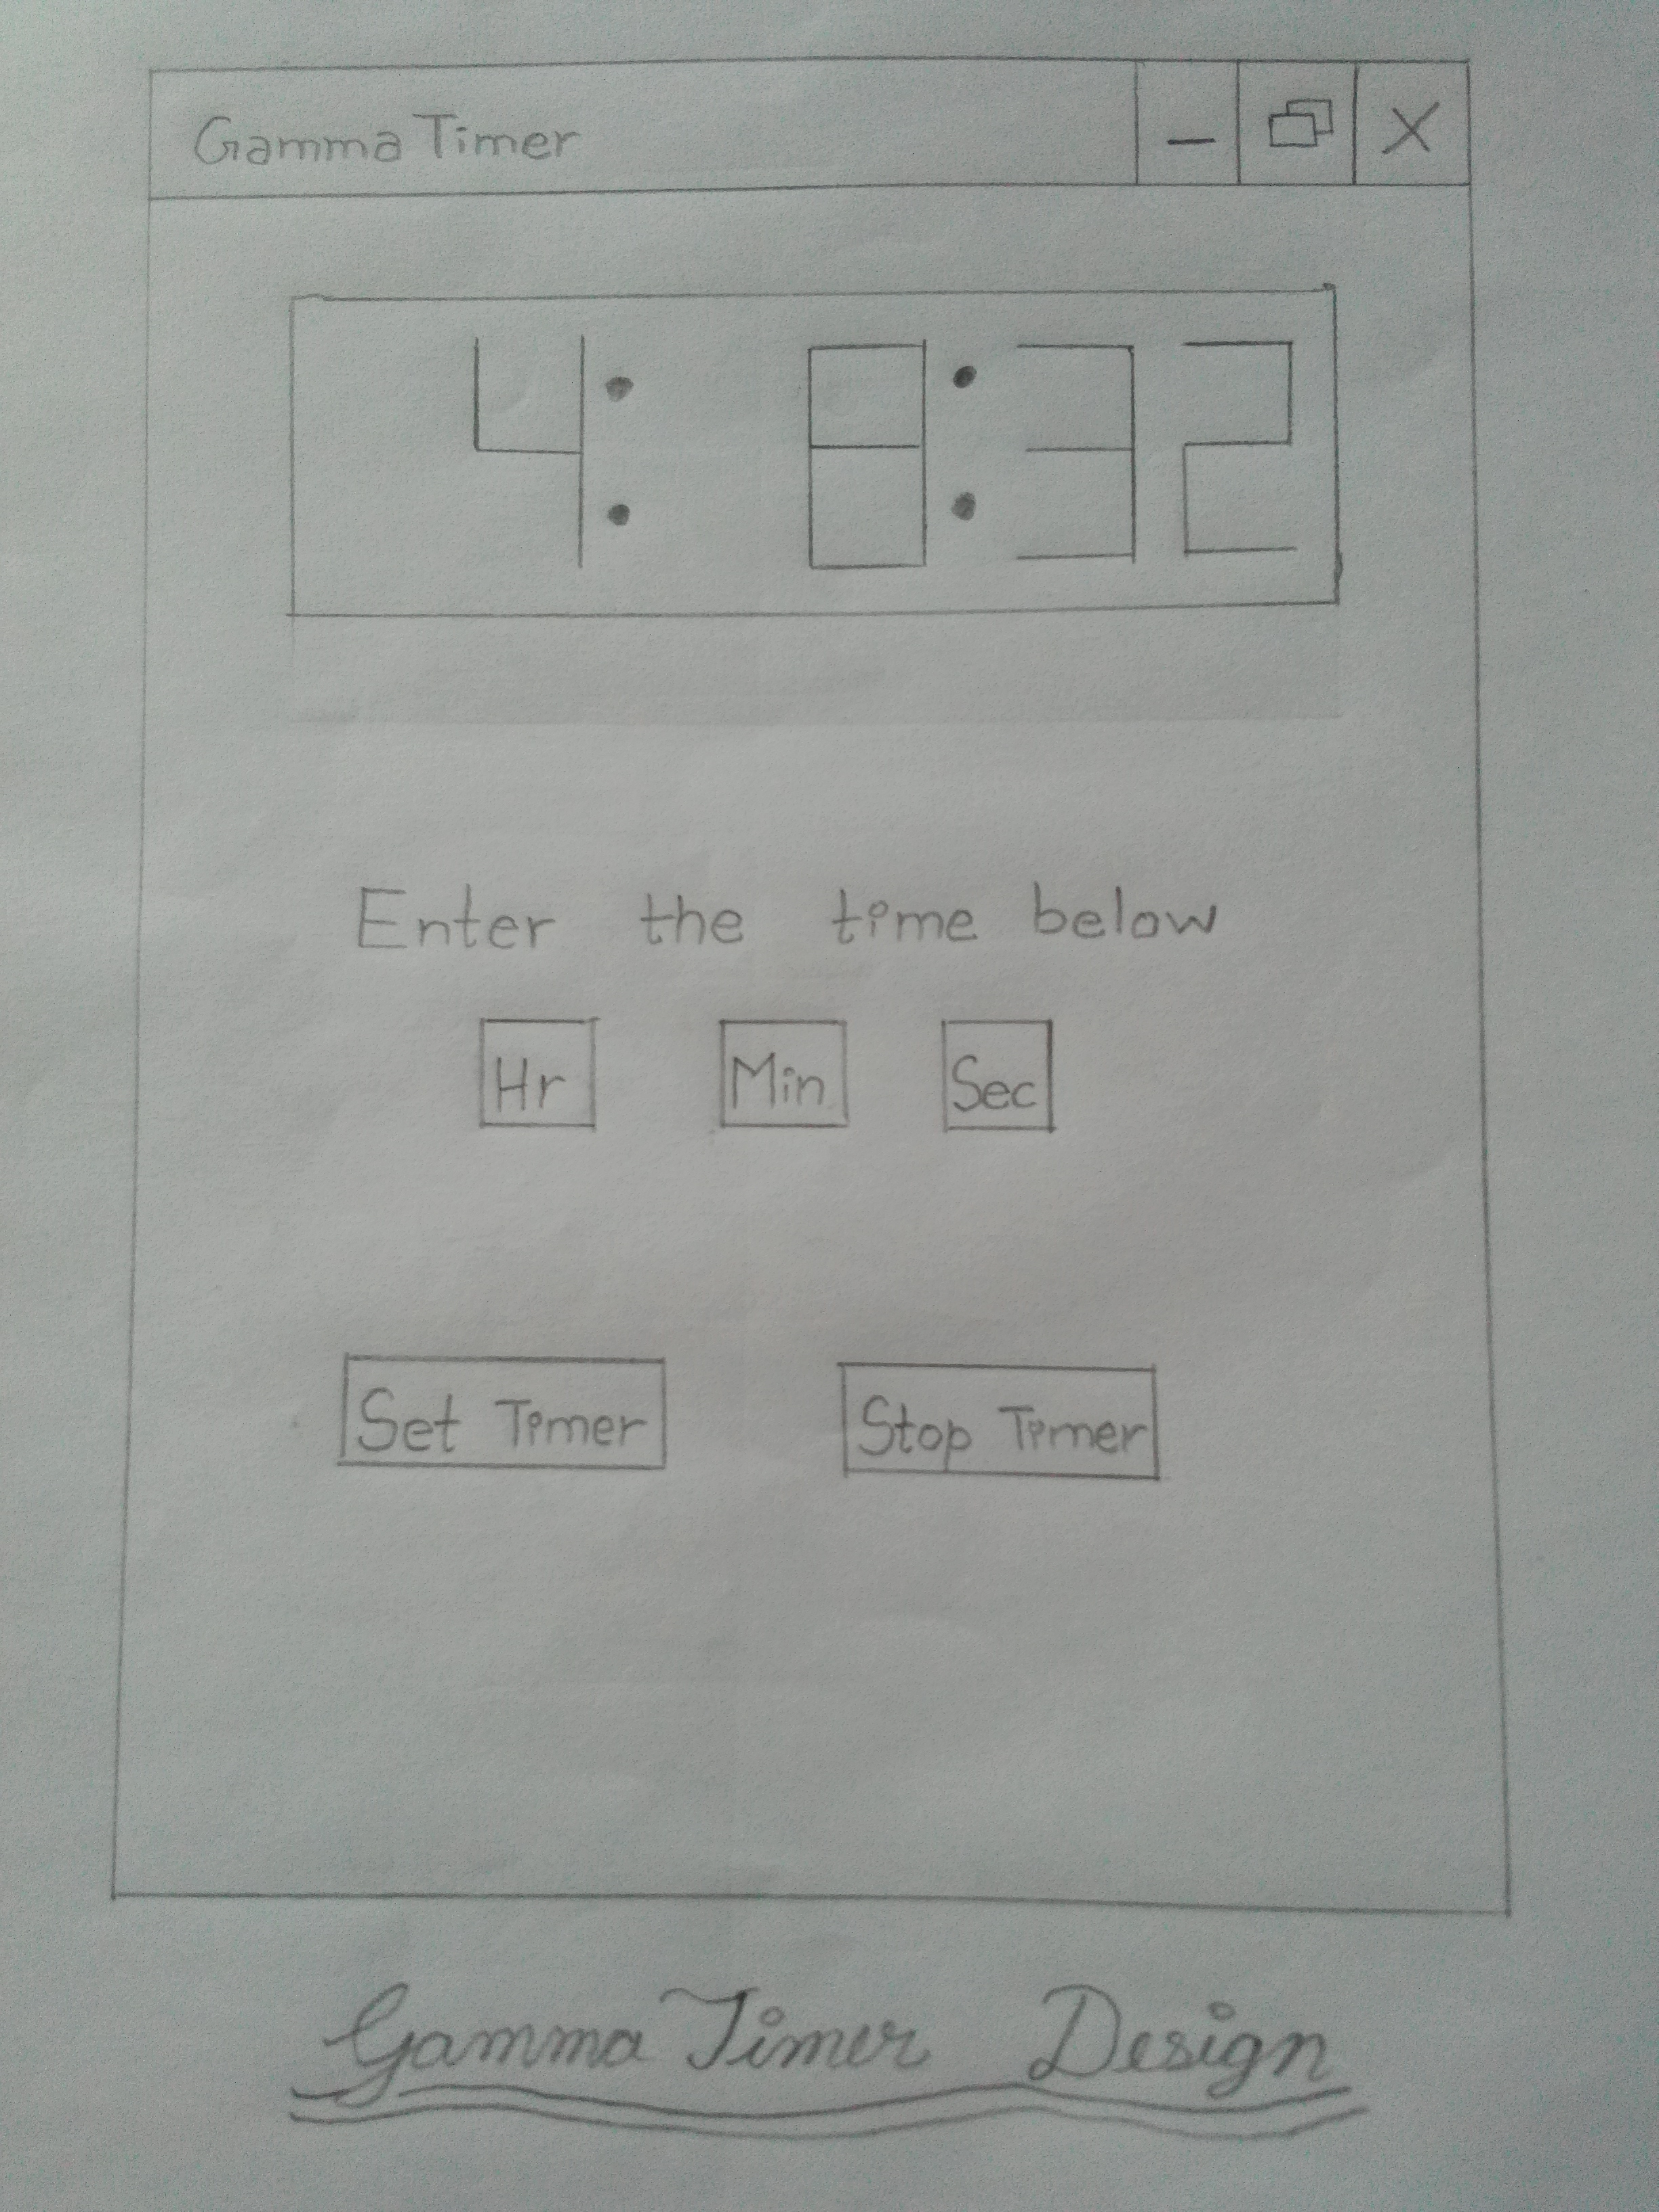 Gamma Timer
4: 8:32
Enter the time below
Hr Min Sec
Set Timer Stop Timer
Gamma Timer Design